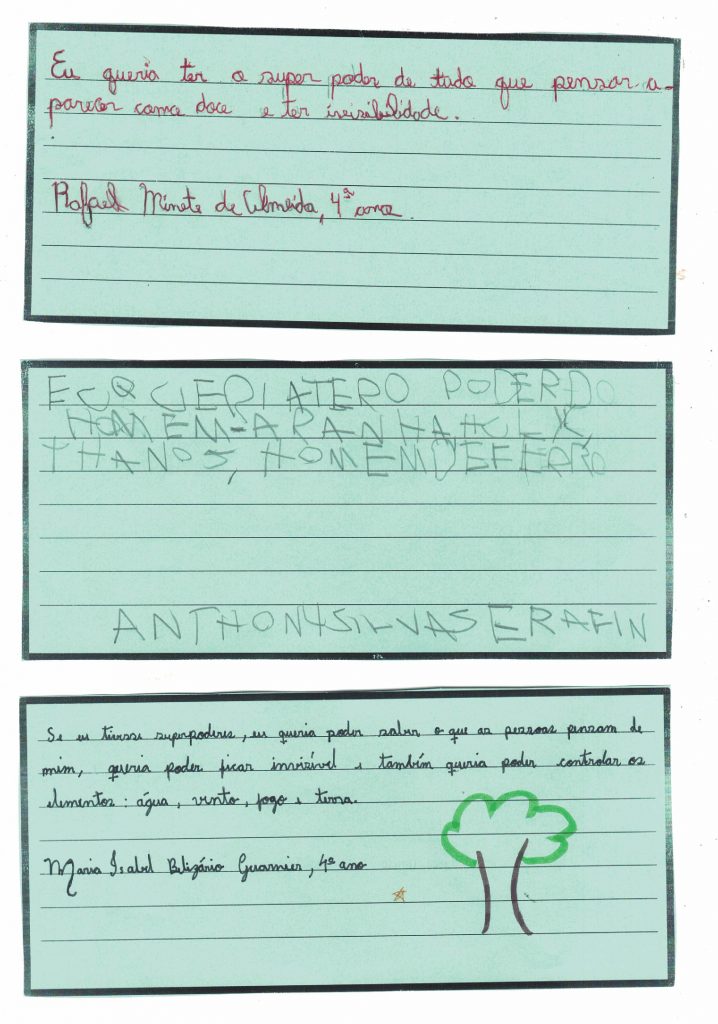 Eu queria ter o super poder de tudo que pensar a-
parecer como doce e ter invisibilidade.
Rafael Minete de Almeida, 4º ano
EU QUERIA TERO PODERDO
HOMEM-ARANHA HULK,
THANOS, HOMEMDEFERRO
ANTHONYSILVASERAFIN
Se eu tivesse superpoderes, eu queria poder saber o que as pessoas pensam de
mim, queria poder ficar invizível e também queria poder controlar os
elementos: água, vento, fogo e terra.
Maria Isabel Belizário Guarnier, 4º ano